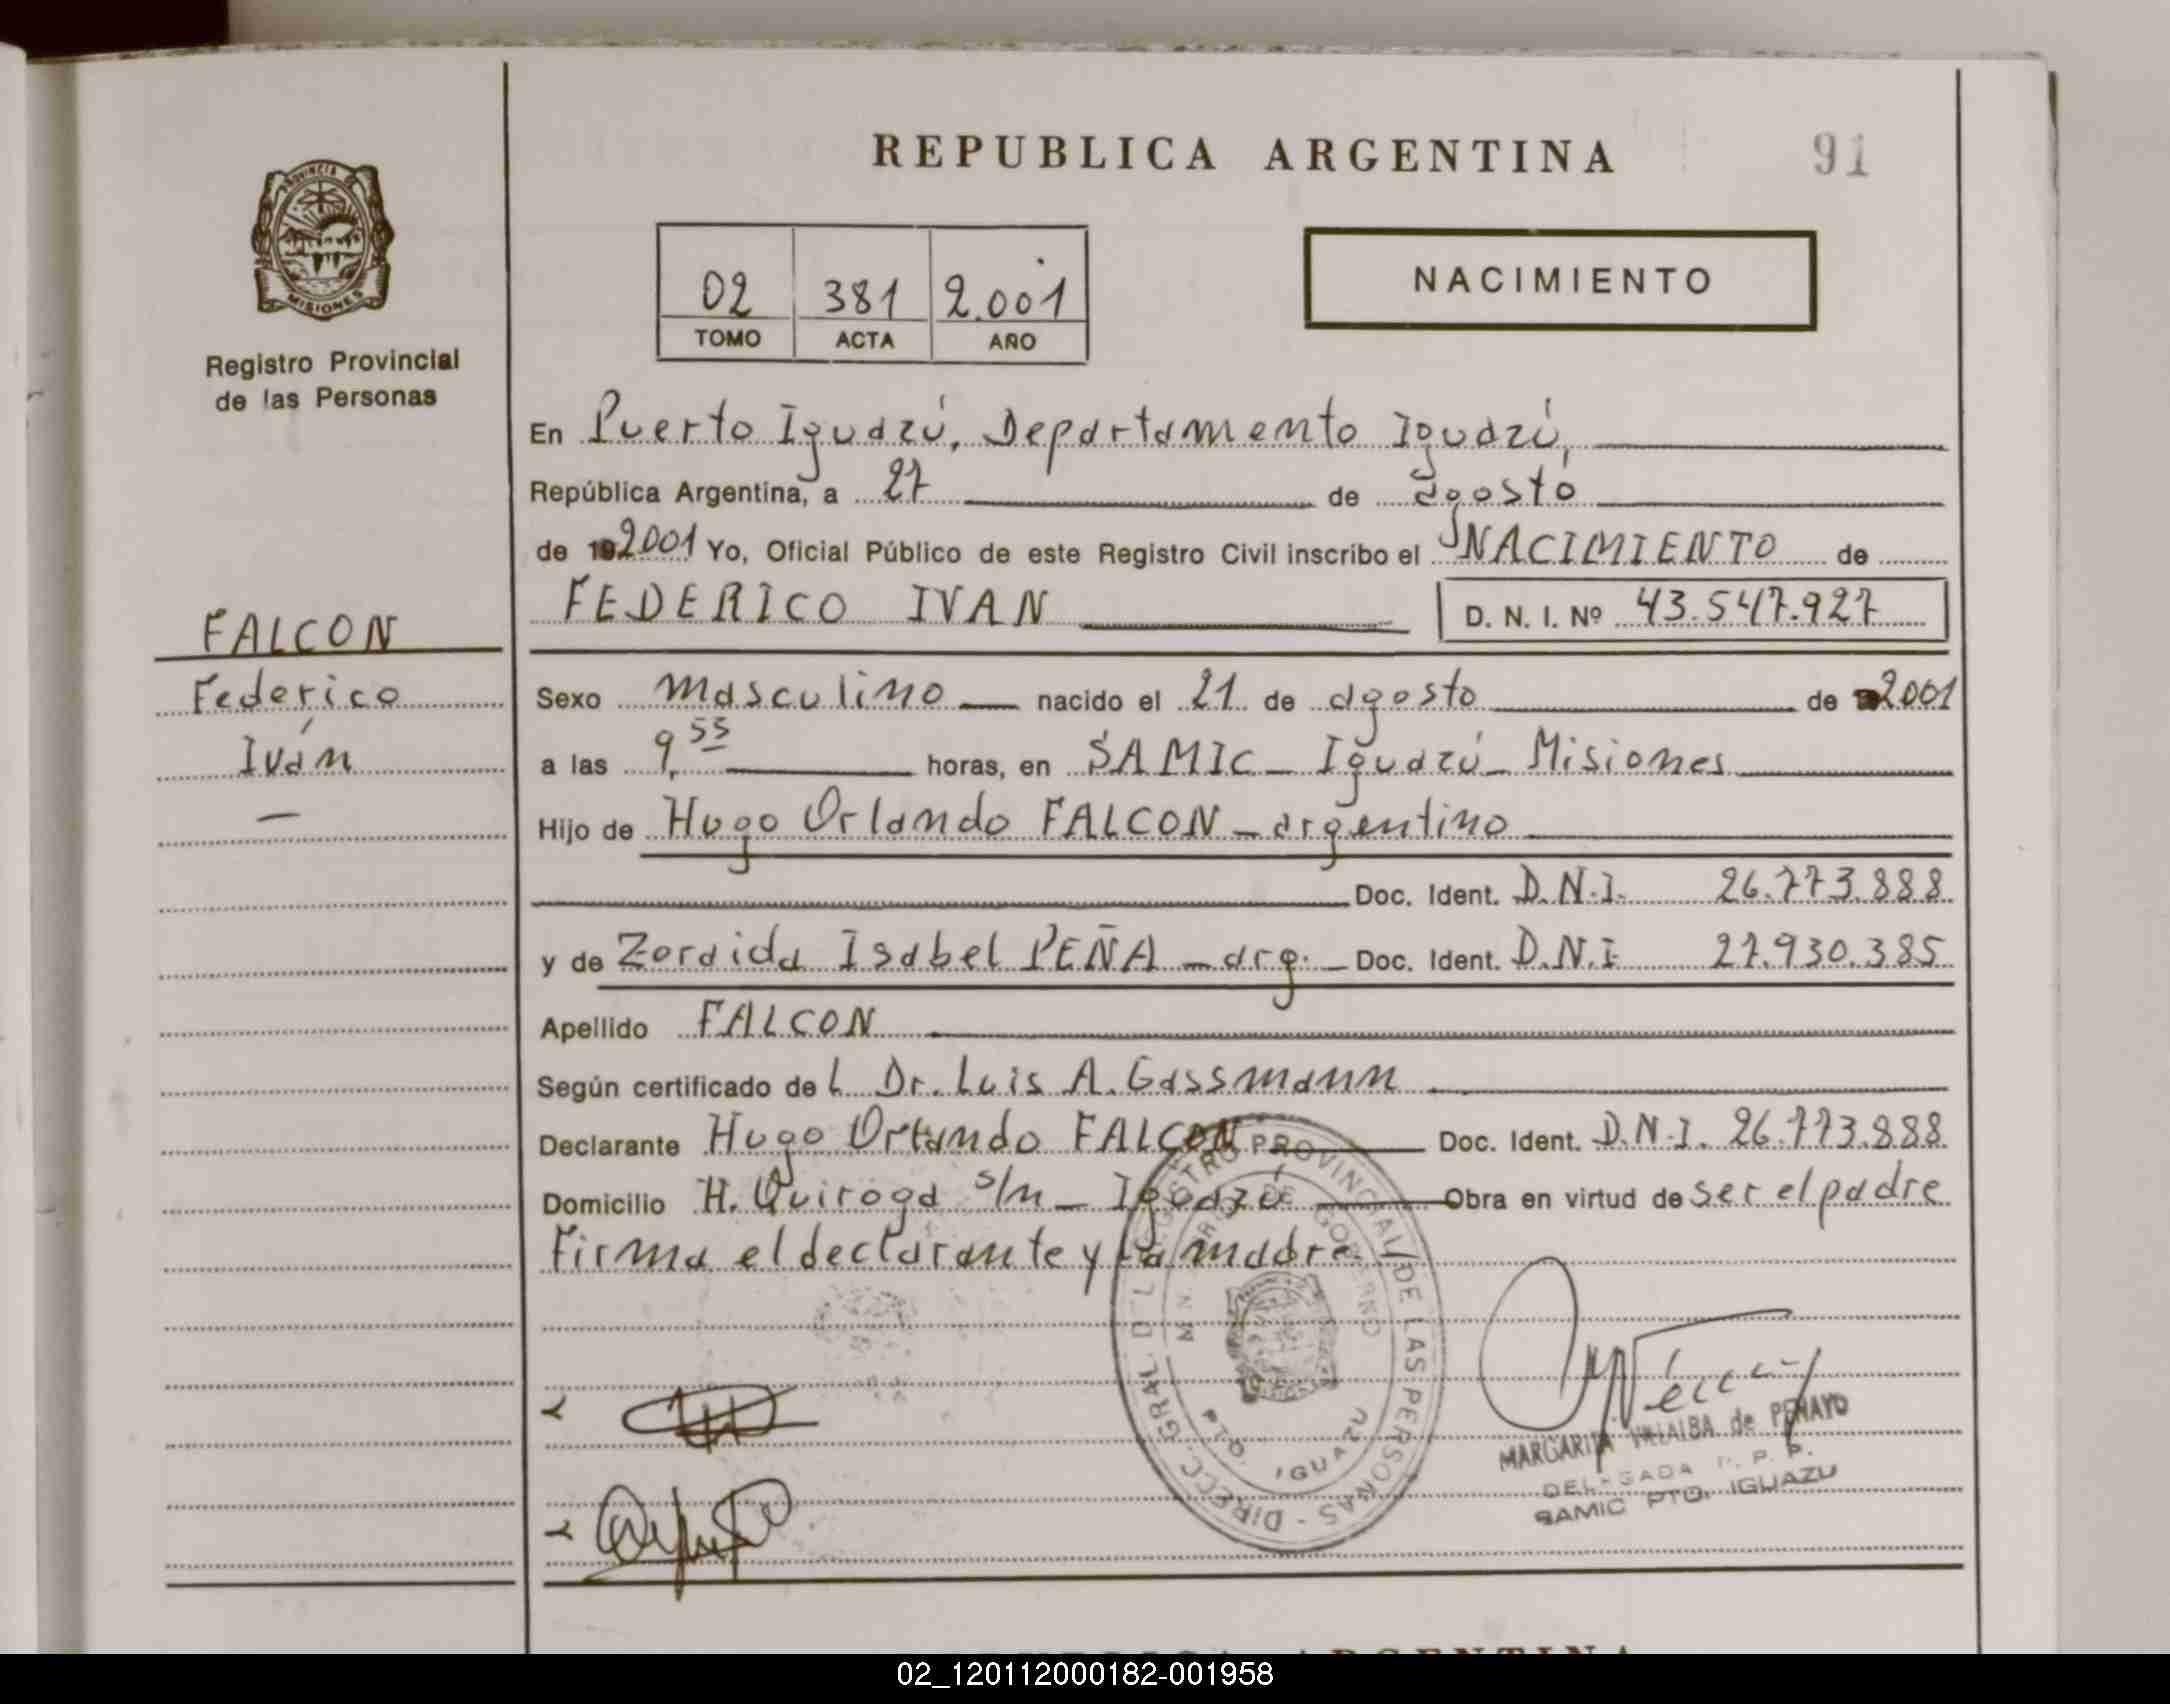 REPUBLICA ARGENTINA
91
PROVINCIA DE
MISIONES
Registro Provincial
de las Personas
02 381 2.001
TOMO ACTA AÑO
NACIMIENTO
En Puerto Iguazú, Departamento Iguazú,
República Argentina, a 27 de agosto
de 192001 Yo, Oficial Público de este Registro Civil inscribo el NACIMIENTO de
FEDERICO IVAN D. N. I. Nº 43.547.927
FALCON
Federico
Iván
Sexo masculino nacido el 21 de agosto de 2001
a las 9,55 horas, en SAMIC - Iguazú - Misiones
Hijo de Hugo Orlando FALCON - argentino
Doc. Ident. D.N.I. 26.773.888
y de Zoraida Isabel PEÑA - arg. - Doc. Ident. D.N.I. 27.930.385
Apellido FALCON
Según certificado de L Dr. Luis A. Gassmann
Declarante Hugo Orlando FALCON Doc. Ident. D.N.I. 26.773.888
Domicilio H. Quiroga s/n - Iguazú Obra en virtud de ser el padre
Firma el declarante y la madre.
DIRECC. GRAL. DEL REGISTRO PROVINCIAL DE LAS PERSONAS
MIN. DE GOBIERNO
PTO. IGUAZU
MARGARITA VILLALBA de PENAYO
DELEGADA R. P. P.
SAMIC PTO. IGUAZU
ARGENTINA
02_120112000182-001958